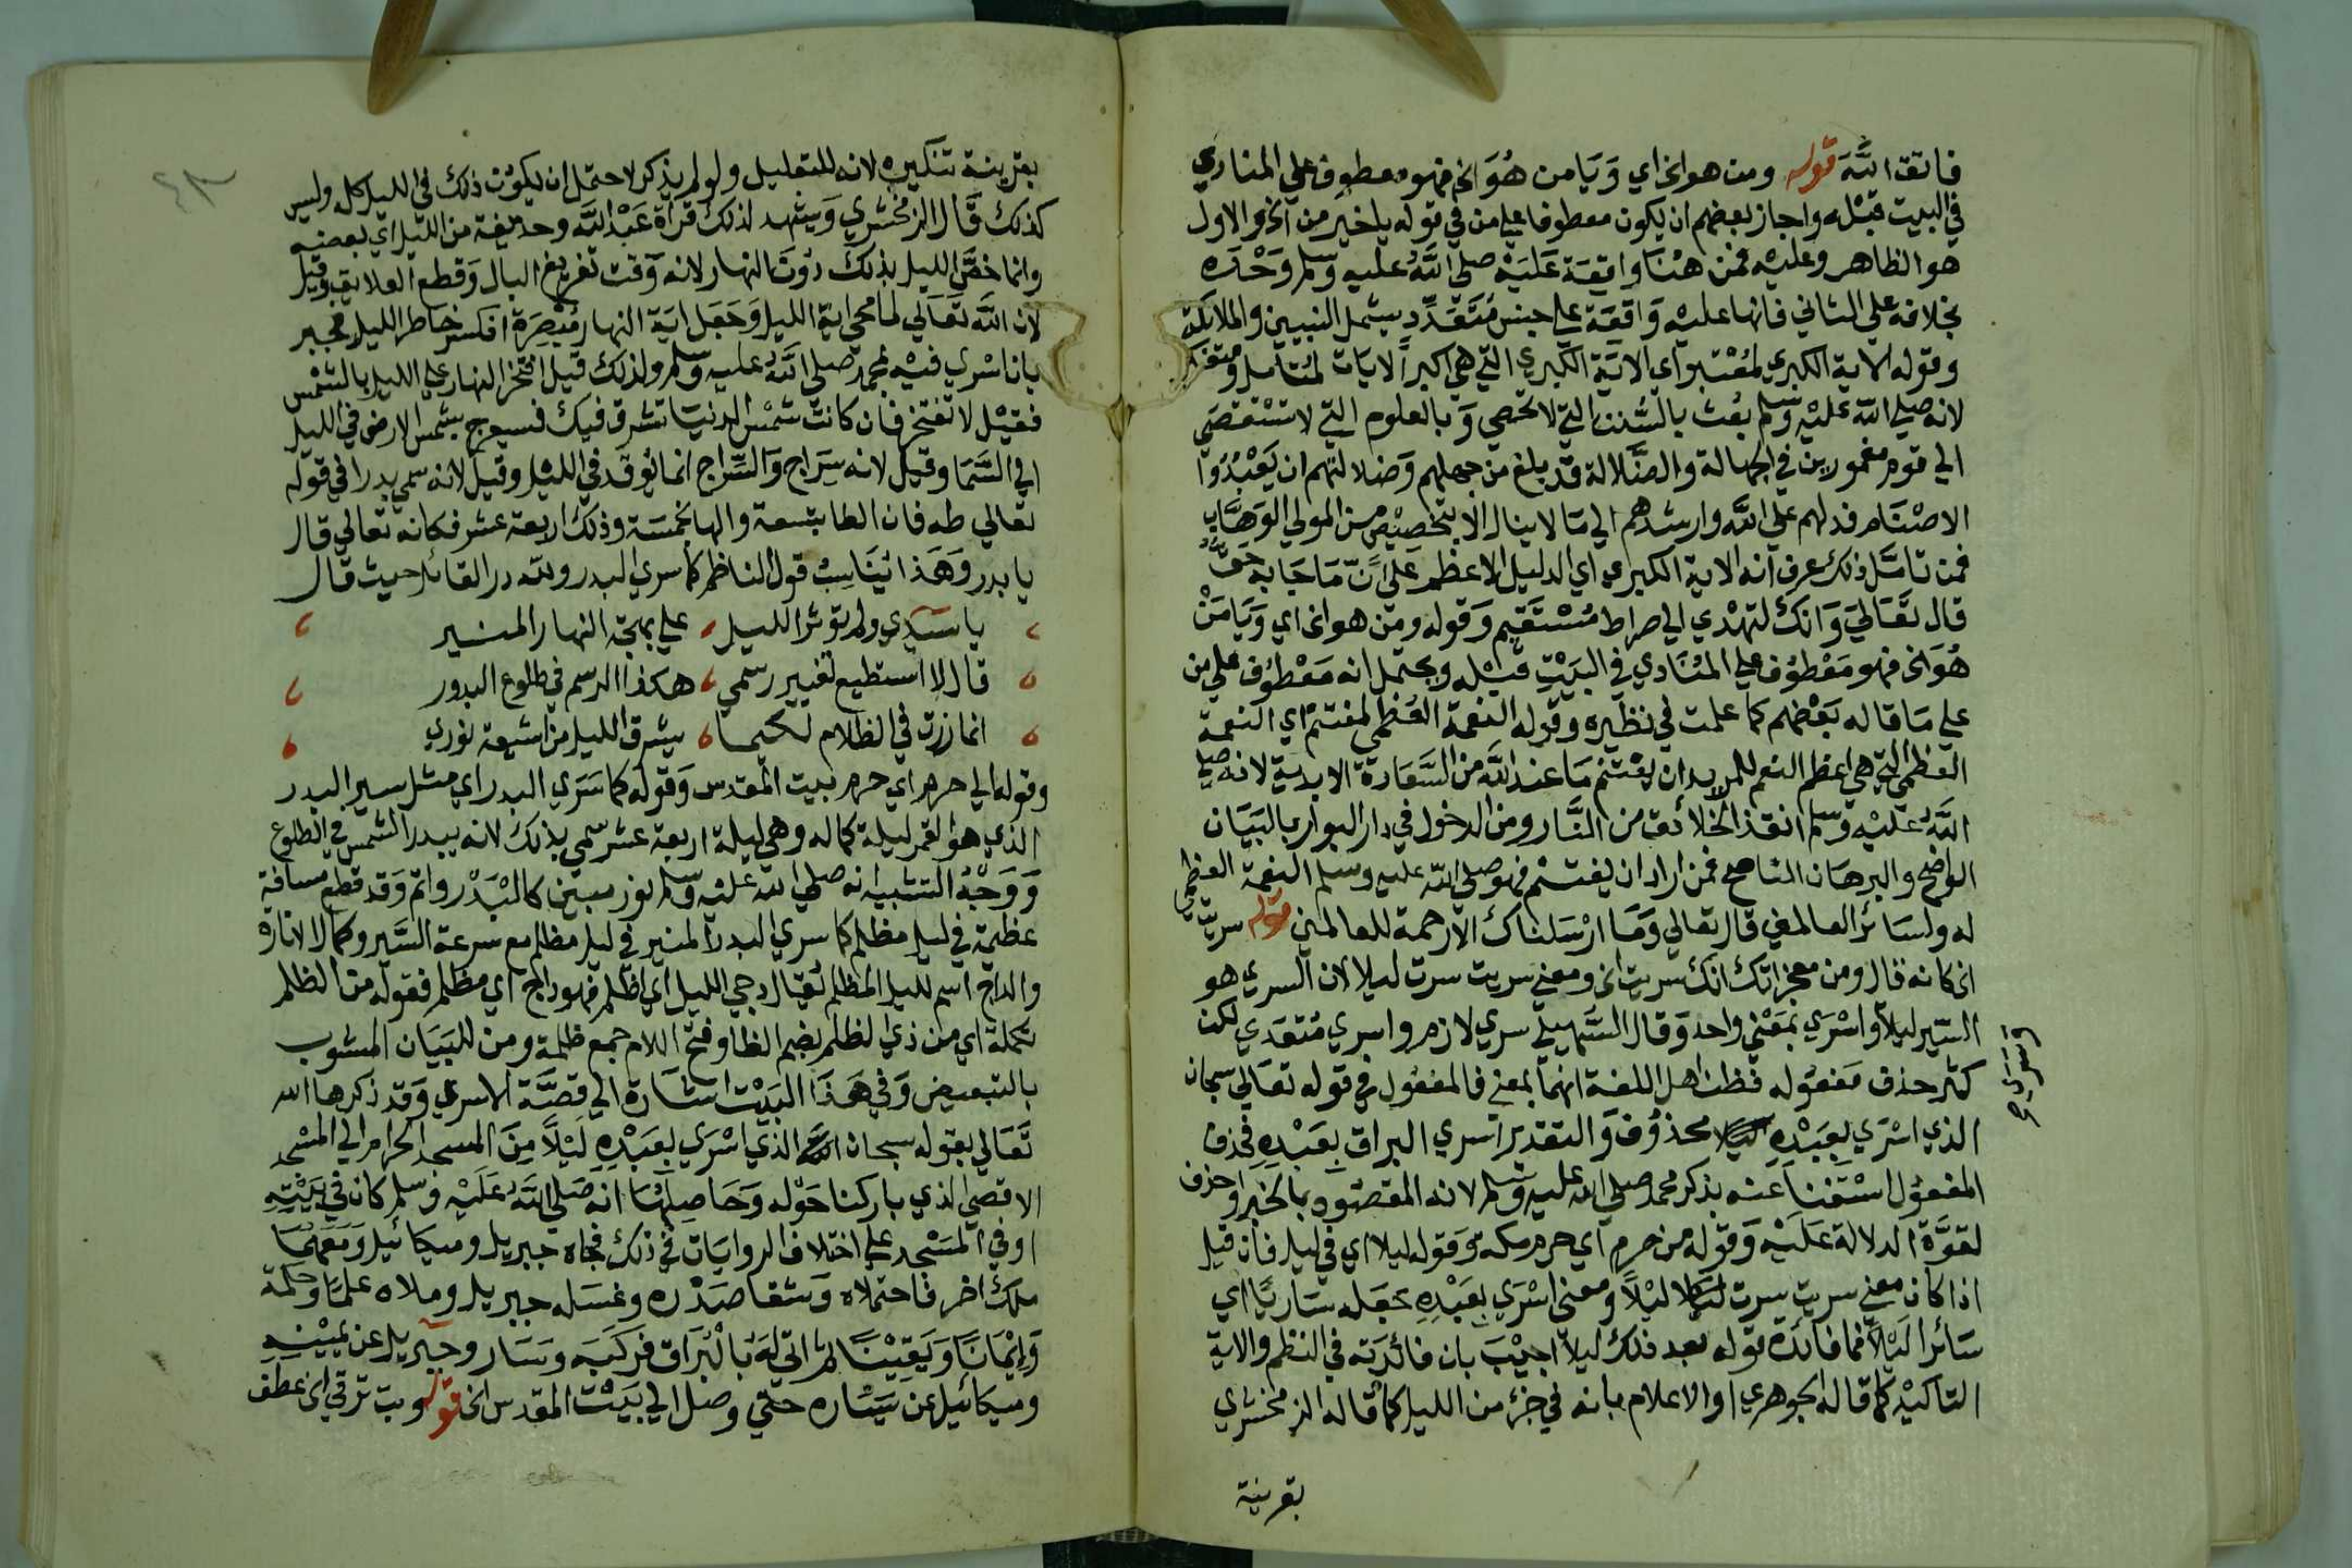 فائقا الله قوله ومن هو الخ اي وَيَا من هُوَ الخ فهو معطوف علي المنادي
في البيت قبله واجاز بعضهم ان يكون معطوفا علي من في قوله يا خير من الخ والاول
هو الظاهر وعليه فمن هنا واقعة عَلَيْه صلي اللَّهُ عليه وسلم وَحْدَه
بخلافه علي الثاني فانها عليه وَاقعَة علي جنس مُتَعَدِّد يشمل النبيين والملايكة
وقوله الاية الكبري لمُعْتبر اي الاية الكبري التي هي اكبر الايات لمتامل ومتفكر
لانه صلي الله عليْه وسلم بعث بالسُّنن التي لا تحصي وَبالعلوم التي لا تستقصي
الي قوم مغمورين في الجهالة والضَّلالة قد بلغ من جهلهم وَضلالتهم ان يَعْبُدُوا
الاصْنَام فدلهم علي اللَّه وارشدهم الي مَا لا ينال الا بتخصيْص من المولي الوَهَّاب
فمن تامَّل ذلك عرف انه الاية الكبري اي الدليل الاعظم عَلَي انّ مَا جَا به حَقٌّ
قال تَعَالي وَانك لتهْدي الي صراط مُسْتَقِيم وَقوله ومَن هو الخ اي وَيَا مَنْ
هُوَ الخ فهو مَعْطوف علي المنَادي في البَيْتِ قبْله ويحتمل انه مَعْطُوف علي من
علي مَا قاله بَعْضهم كما علمت في نظيره وقوله النعمة العُظمي لمغتنم اي النعمة
العظمي التي هي اعظم النعم للمريد ان يغْتنم مَا عند اللَّه من السَّعَادة الابدية لانه صلي
اللَّهُ عليْه وسلم انقذ الخلائق من النَّار ومن الدخول في دار البوار بالبَيَان
الواضح والبرهَان الناصح فمن اراد ان يغتنم فهو صلي الله عليه وسلم النعمة العظمي
له ولسَائر العالمين قال تعالي وَمَا ارْسَلناك الا رحمة للعالمين قوله سريت
الخ كانه قال ومن معجزاتك انك سريت الخ ومعني سريت سرت ليلا لان السري هو
السّير ليلا واسْرَي بمَعْنَي واحد وَقال السُّهَيلي سري لازم واسري مُتعَدي لكن
كثر حذف مَفعُوله فظن اهل اللغة انهما بمعني فالمفعُول في قوله تعَالي سبحان
الذي اسْرَي بعَبْدِه ليلا محذوف وَالتقدير اسري البراق بعَبْدِهِ فحذف
المفعُول اسْتغناَ عَنه بذكر محمد صلي الله عليه وسلم لانه المقصُود بالخبر او حذف
لقوَّة الدلالة عَلَيْه وَقوله من حرم اي حرم مكه وَقوله ليلا اي في ليل فان قيل
اذا كان معني سريت سرت ليلا ليْلاً ومعني اسْرَي بعَبْدِهِ جعَله سَاريًا اي
سَائرا ليْلاً فما فائدة قوله بعد ذلك ليلا اجيْبَ بان فائدَته في النظم والاية
التاكيْد كما قاله الجوهري او الاعلام بانه في جزء من الليل كما قاله الزمخشري
بقرينة
بقرينة تنكيره لانه للتقليل ولو لم يذكر لاحتمل ان يكون ذلك في الليل كله وليس
كذلك قال الزمخشري وَيشهد لذلك قراة عَبْد اللَّه وحذيفة من الليل اي بعضه
وانما خصَّ الليل بذلك دُونَ النهار لانه وَقت تفريغ البال وَقطع العلايق وقيل
لان اللَّه تَعَالي لما محي اية الليل وَجَعَل ايَة النهار مُبْصِرَة انكسر خاطر الليل فجبر
بان اسْري فيْه بمحمد صلي اللَّهُ عليه وسلم ولذلك قيل افتخر النهار علي الليل بالشمْس
فقيْل لا تفتخر فان كانتْ شمْس الدنيَا تشرق فيك فسيعرج بشمس الارض في الليل
الي السَّمَا وقيْل لانه سِرَاج وَالسِّراج انما يُوقَد في الليْل وقيل لانه سمي بدرا في قوله
تعالي طه فان الطا بتسعة والها بخمسَة وذلك اربعة عشر فكانه تعالي قال
يا بدر وَهَذا يُنَاسِبُ قول الناظم كما سري البدر ولله در القائل حيث قال
يا سيّدي ولم تؤثر الليل ، علي بهجة النهار المنير
قال لا استطيع تغيير رسمي ، هكذا الرسم في طلوع البدور
انما زرت في الظلام لكيما ، يشرق الليل من اشعة نوري
وقوله الي حرم اي حرم بيت المقدس وَقوله كما سَرَي البدر اي مثل سير البدر
الذي هو القمر ليلة كماله وهي ليلة اربعة عشر سمي بذلك لانه يبدر الشمس في الطلوع
وَوَجْهُ التشبيه انه صلي الله عليْه وسلم نور مبين كالبَدْر واتم وَقد قطع مسافة
عظيمة في ليل مظلم كما سري البدر المنير في ليل مظلم مع سرعة السَّير وكمال الانارة
والداج اسم لليل المظلم يُقال دجي الليل اي اظلم فهو داج اي مظلم فقوله من الظلم
تكملة اي من ذي الظلم بضم الظا وفتح اللام جمع ظلمة ومن للبَيَان المشوب
بالتبعيض وَفي هَذَا البَيْت اشَارة الي قصَّة الاسري وَقد ذكرها الله
تَعَالي بقوله سبحان الذي اسْرَي بعَبْدِهِ لَيْلاً مِنَ المسجد الحرام الي المسْجد
الاقصي الذي باركنا حَوْله وَحَاصِلُهَا انه صَلي اللَّهُ عَلَيْه وَسلم كان في بَيْتِهِ
او في المَسْجد علي اختلاف الروايَات في ذلك فجاه جبريل وميكائيل وَمَعَهُمَا
ملك اخر فاحتملاه وَشقا صَدْره وغسَله جبريل وملاه علمًا وحكمة
وَايْمَانًا وَيَقِيْنًا ثم اتي لهُ بالْبُرَاق فركبَه وسَار وجبريل عن يميْنهِ
وميكائيل عن يسَاره حتي وصل الي بَيْت المقدس الخ قوله وبت ترقي الخ عطف